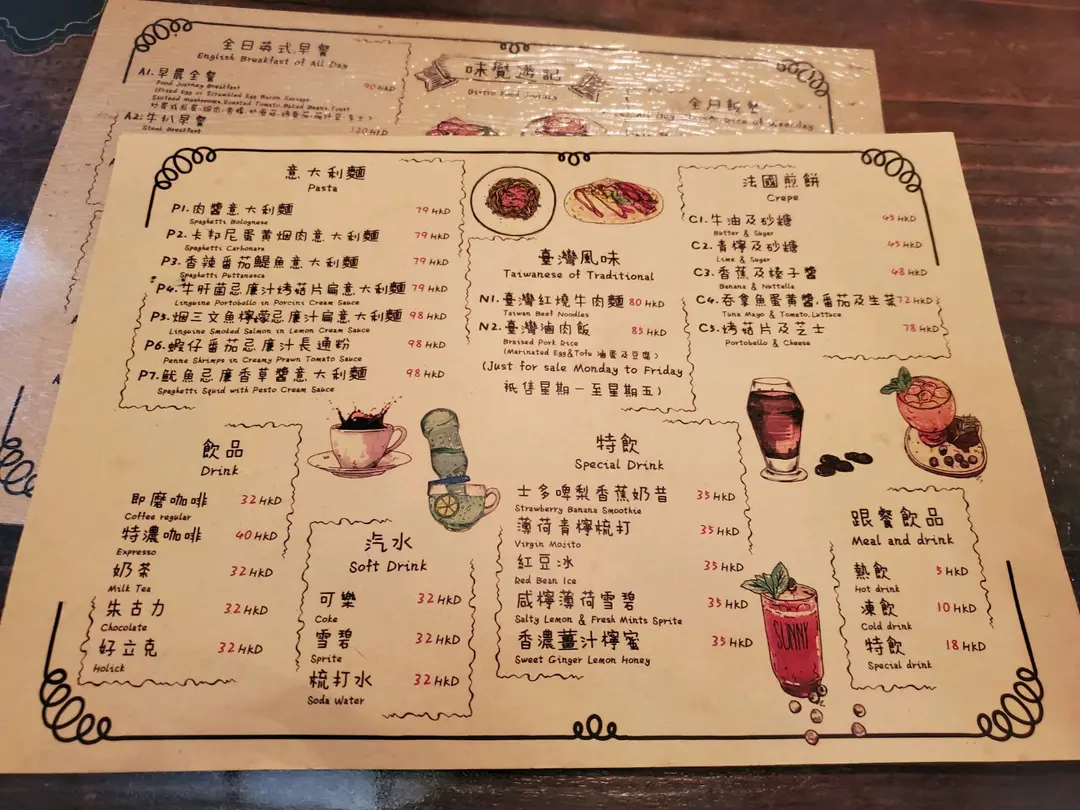 全日英式早餐
English Breakfast of All Day
A1.早晨全餐 90 HKD
Food Journey Breakfast
A2.牛扒早餐 120 HKD
Steak Breakfast
味覺遊記
Bistro Food Journey
全日飯
意大利麵
Pasta
P1.肉醬意大利麵 79 HKD
Spaghetti Bolognese
P2.卡邦尼蛋黄烟肉意大利麵 79 HKD
Spaghetti Carbonara
P3.香辣番茄鯷魚意大利麵 79 HKD
Spaghetti Puttanesca
P4.牛肝菌忌廉汁烤菇片扁意大利麵 79 HKD
Linguine Portobello in Porcini Cream Sauce
P5.烟三文魚檸檬忌廉汁扁意大利麵 98 HKD
Linguine Smoked Salmon in Lemon Cream Sauce
P6.蝦仔番茄忌廉汁長通粉 98 HKD
Penne Shrimps in Creamy Prawn Tomato Sauce
P7.魷魚忌廉香草醬意大利麵 98 HKD
Spaghetti Squid with Pesto Cream Sauce
臺灣風味
Taiwanese of Traditional
N1.臺灣紅燒牛肉麵 80 HKD
Taiwan Beef Noodles
N2.臺灣滷肉飯 85 HKD
Braised Pork Rice
(Marinated Egg&Tofu 滷蛋及豆腐)
(Just for sale Monday to Friday
祇售星期一至星期五)
法國煎餅
Crepe
C1.牛油及砂糖 45 HKD
Butter & Sugar
C2.青檸及砂糖 45 HKD
Lime & Sugar
C3.香蕉及榛子醬 48 HKD
Banana & Nuttella
C4.吞拿魚蛋黃醬.番茄及生菜 72 HKD
Tuna Mayo & Tomato, Luttuce
C5.烤菇片及芝士 78 HKD
Portobello & Cheese
飲品
Drink
即磨咖啡 32 HKD
Coffee regular
特濃咖啡 40 HKD
Expresso
奶茶 32 HKD
Milk Tea
朱古力 32 HKD
Chocolate
好立克 32 HKD
Holick
汽水
Soft Drink
可樂 32 HKD
Coke
雪碧 32 HKD
Sprite
梳打水 32 HKD
Soda Water
特飲
Special Drink
士多啤梨香蕉奶昔 35 HKD
Strawberry Banana Smoothie
薄荷青檸梳打 35 HKD
Virgin Mojito
紅豆冰 35 HKD
Red Bean Ice
咸檸薄荷雪碧 35 HKD
Salty Lemon & Fresh Mints Sprite
香濃薑汁檸蜜 35 HKD
Sweet Ginger Lemon Honey
SUNNY
跟餐飲品
Meal and drink
熱飲 5 HKD
Hot drink
凍飲 10 HKD
Cold drink
特飲 18 HKD
Special drink